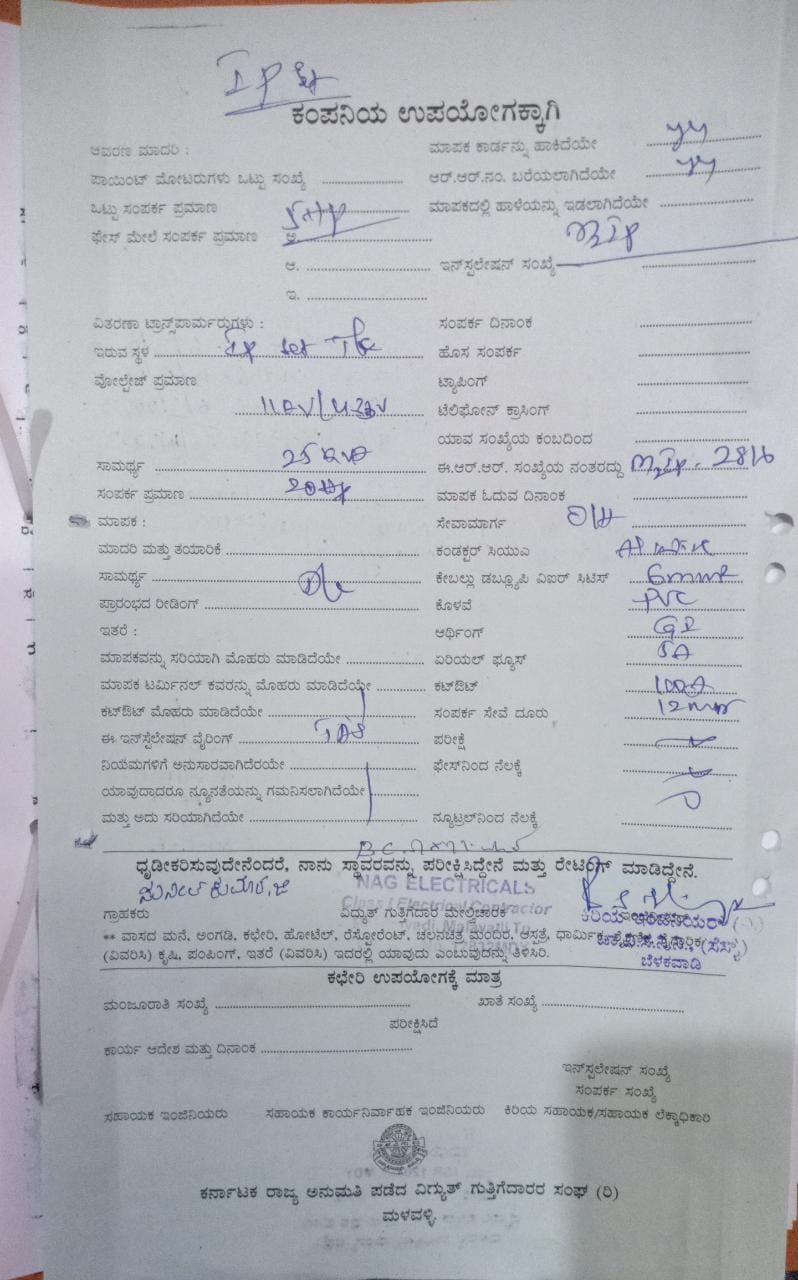 IP Set
ಕಂಪನಿಯ ಉಪಯೋಗಕ್ಕಾಗಿ
ಆವರಣ ಮಾದರಿ : ಮಾಪಕ ಕಾರ್ಡನ್ನು ಹಾಕಿದೆಯೇ
ಪಾಯಿಂಟ್ ಮೋಟರುಗಳು ಒಟ್ಟು ಸಂಖ್ಯೆ ಆರ್.ಆರ್.ನಂ. ಬರೆಯಲಾಗಿದೆಯೇ
ಒಟ್ಟು ಸಂಪರ್ಕ ಪ್ರಮಾಣ 5HP ಮಾಪಕದಲ್ಲಿ ಹಾಳೆಯನ್ನು ಇಡಲಾಗಿದೆಯೇ
ಫೇಸ್ ಮೇಲೆ ಸಂಪರ್ಕ ಪ್ರಮಾಣ ಅ.
ಆ. ಇನ್‌ಸ್ಪಲೇಷನ್ ಸಂಖ್ಯೆ
ಇ.
ವಿತರಣಾ ಟ್ರಾನ್ಸ್‌ಪಾರ್ಮರುಗಳು : ಸಂಪರ್ಕ ದಿನಾಂಕ
ಇರುವ ಸ್ಥಳ IP set ಹೊಸ ಸಂಪರ್ಕ
ವೋಲ್ಟೇಜ್ ಪ್ರಮಾಣ ಟ್ಯಾಪಿಂಗ್
ಟೆಲಿಫೋನ್ ಕ್ರಾಸಿಂಗ್
ಯಾವ ಸಂಖ್ಯೆಯ ಕಂಬದಿಂದ
ಸಾಮರ್ಥ್ಯ 25 KVA ಈ.ಆರ್.ಆರ್. ಸಂಖ್ಯೆಯ ನಂತರದ್ದು
ಸಂಪರ್ಕ ಪ್ರಮಾಣ 20HP ಮಾಪಕ ಓದುವ ದಿನಾಂಕ
ಮಾಪಕ : ಸೇವಾಮಾರ್ಗ O/H
ಮಾದರಿ ಮತ್ತು ತಯಾರಿಕೆ ಕಂಡಕ್ಟರ್ ಸಿಯುಎ
ಸಾಮರ್ಥ್ಯ ಕೇಬಲ್ಲು ಡಬ್ಲ್ಯೂಪಿ ವಿಐರ್ ಸಿಟಿಸ್
ಪ್ರಾರಂಭದ ರೀಡಿಂಗ್ ಕೊಳವೆ PVC
ಇತರೆ : ಆರ್ಥಿಂಗ್ GI
ಮಾಪಕವನ್ನು ಸರಿಯಾಗಿ ಮೊಹರು ಮಾಡಿದೆಯೇ ಏರಿಯಲ್ ಫ್ಯೂಸ್ 5A
ಮಾಪಕ ಟರ್ಮಿನಲ್ ಕವರನ್ನು ಮೊಹರು ಮಾಡಿದೆಯೇ ಕಟ್‌ಔಟ್ 100A
ಕಟ್‌ಔಟ್ ಮೊಹರು ಮಾಡಿದೆಯೇ ಸಂಪರ್ಕ ಸೇವೆ ದೂರು
ಈ ಇನ್‌ಸ್ಪೆಲೇಷನ್ ವೈರಿಂಗ್ ಪರೀಕ್ಷೆ
ನಿಯಮಗಳಿಗೆ ಅನುಸಾರವಾಗಿದೆರಯೇ ಫೇಸ್‌ನಿಂದ ನೆಲಕ್ಕೆ
ಯಾವುದಾದರೂ ನ್ಯೂನತೆಯನ್ನು ಗಮನಿಸಲಾಗಿದೆಯೇ
ಮತ್ತು ಅದು ಸರಿಯಾಗಿದೆಯೇ ನ್ಯೂಟ್ರಲ್‌ನಿಂದ ನೆಲಕ್ಕೆ
ಧೃಡೀಕರಿಸುವುದೇನೆಂದರೆ, ನಾನು ಸ್ಥಾವರವನ್ನು ಪರೀಕ್ಷಿಸಿದ್ದೇನೆ ಮತ್ತು ರೇಟಿಂಗ್ ಮಾಡಿದ್ದೇನೆ.
ಸುನೀಲ್ ಕುಮಾರ್.ಜಿ NAG ELECTRICALS
Class I Electrical Contractor
ಗ್ರಾಹಕರು ವಿದ್ಯುತ್ ಗುತ್ತಿಗೆದಾರ ಮೇಲ್ವಿಚಾರಕ ಕಿರಿಯ ಇಂಜಿನಿಯರ್
** ವಾಸದ ಮನೆ, ಅಂಗಡಿ, ಕಛೇರಿ, ಹೋಟೆಲ್, ರೆಸ್ಟೋರೆಂಟ್, ಚಲನಚಿತ್ರ ಮಂದಿರ, ಆಸ್ಪತ್ರೆ, ಧಾರ್ಮಿಕ,
(ವಿವರಿಸಿ) ಕೃಷಿ, ಪಂಪಿಂಗ್, ಇತರೆ (ವಿವರಿಸಿ) ಇದರಲ್ಲಿ ಯಾವುದು ಎಂಬುವುದನ್ನು ತಿಳಿಸಿರಿ. ಬೆಳಕವಾಡಿ
ಕಛೇರಿ ಉಪಯೋಗಕ್ಕೆ ಮಾತ್ರ
ಮಂಜೂರಾತಿ ಸಂಖ್ಯೆ ಖಾತೆ ಸಂಖ್ಯೆ
ಪರೀಕ್ಷಿಸಿದೆ
ಕಾರ್ಯ ಆದೇಶ ಮತ್ತು ದಿನಾಂಕ
ಇನ್‌ಸ್ಪಲೇಷನ್ ಸಂಖ್ಯೆ
ಸಂಪರ್ಕ ಸಂಖ್ಯೆ
ಸಹಾಯಕ ಇಂಜಿನಿಯರು ಸಹಾಯಕ ಕಾರ್ಯನಿರ್ವಾಹಕ ಇಂಜಿನಿಯರು ಕಿರಿಯ ಸಹಾಯಕ/ಸಹಾಯಕ ಲೆಕ್ಕಾಧಿಕಾರಿ
ಕರ್ನಾಟಕ ರಾಜ್ಯ ಅನುಮತಿ ಪಡೆದ ವಿದ್ಯುತ್ ಗುತ್ತಿಗೆದಾರರ ಸಂಘ (ರಿ)
ಮಳವಳ್ಳಿ.